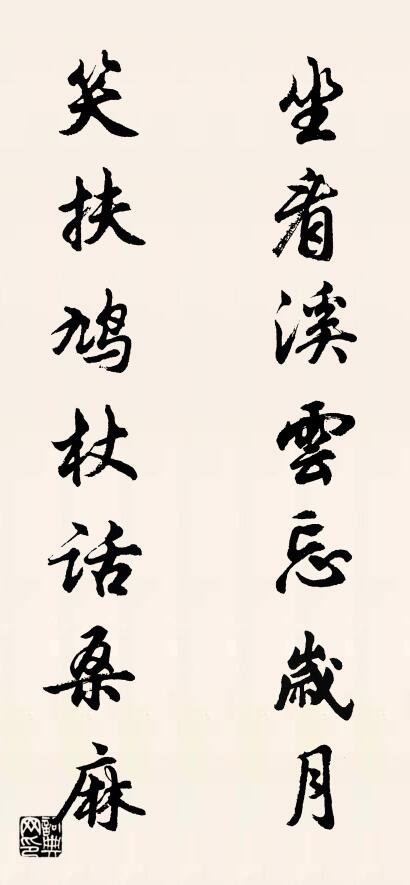 坐看溪雲忘歲月
笑扶鳩杖話桑麻